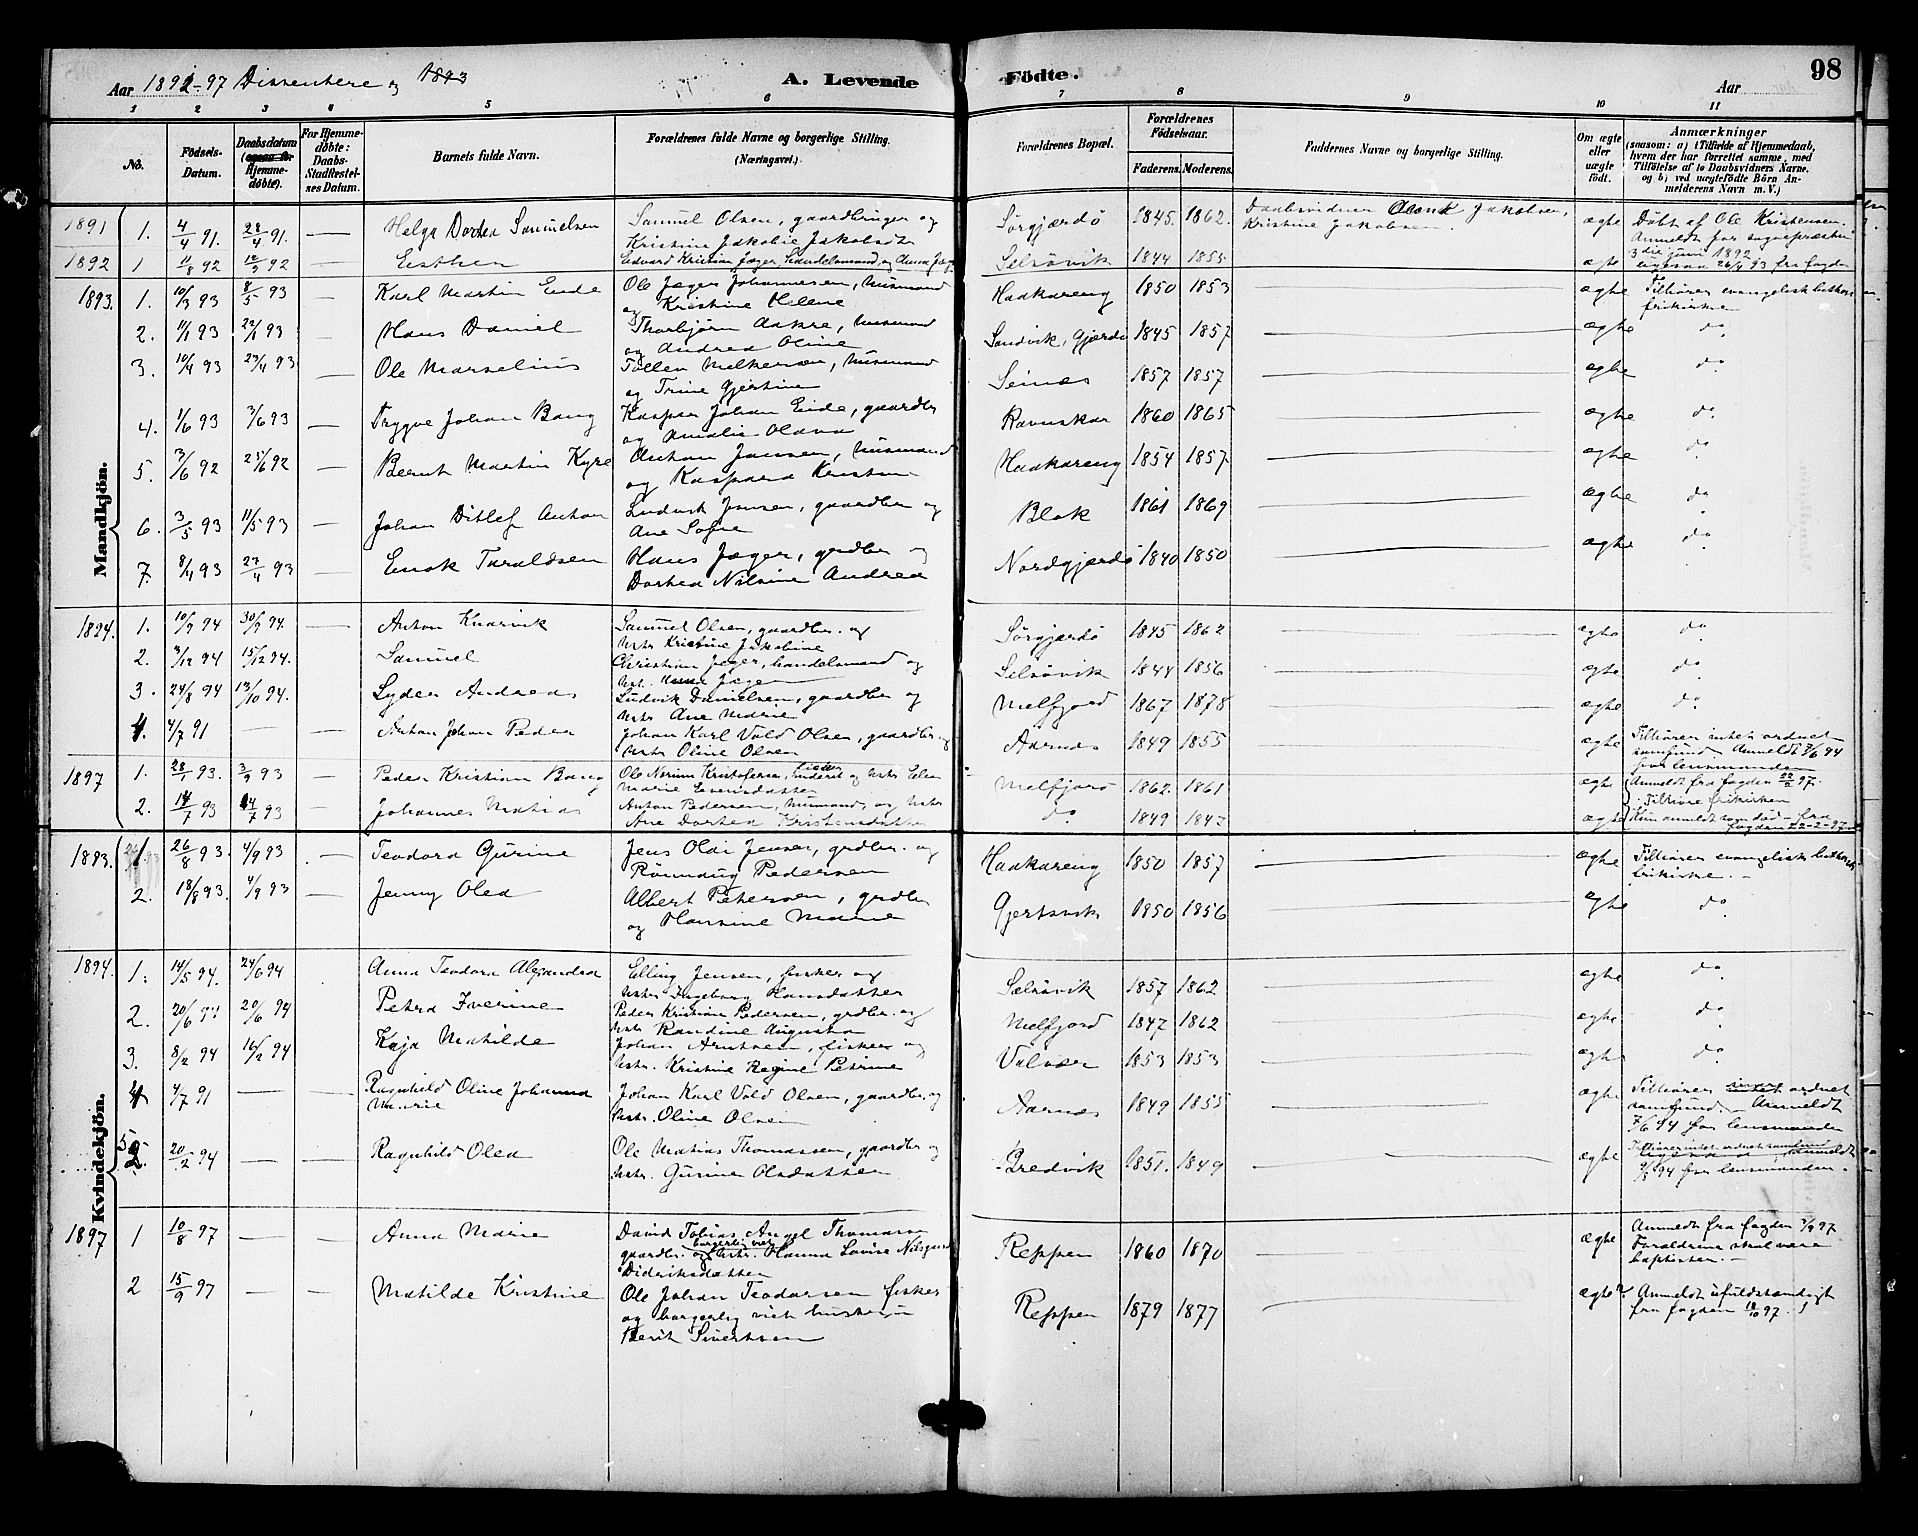 Aar 1892-97 Dissentere 1893
A. Levende Födte.
Aar 98
1 2 3 4 5 6 7 8 9 10 11
No. Födsels-Datum. Daabsdatum (Hjemmedøbte). For Hjemmedøbte: Daabs-Stadfæstelses Datum. Barnets fulde Navn. Forældrenes fulde Navne og borgerlige Stilling. (Næringsvei.) Forældrenes Bopæl. Forældrenes Födselsaar. Faderens. Moderens. Faddernes Navne og borgerlige Stilling. Om ægte eller uægte födt. Anmærkninger (saasom: a) i Tilfælde af Hjemmedaab, hvem der har forrettet samme, med Tilföielse af to Daabsvidners Navne, og b) ved uægtefödte Börn Anmelderens Navn m. V.)
Mandkjön.
1891 1. 4/4 91. 28/4 91. — Helga Dortea Samuelsen Samuel Olsen, gaardbruger og Kristine Jakobie Jakobsdt Sörgjærdö 1845. 1862. Daabsvidner Jakobsen, Kristine Jakobsen. ægte Døbt af Ole Kristensen. Anmeldt for sognepræsten 3die juni 1892
1892 1 11/8 92 10/9 92 — Esther Edvard Kristian Jæger, Handelsmand, og Anna Jæger Selsövik 1844 1855 ægte 26/4 93 fra fogden
1893. 1. 10/3 93 8/5 93 — Karl Martin Eide Ole Jæger Johannesen, husmand og Kristine Helene Haakareng 1850 1853 — ægte Tilhører evangelisk luthersk frikirke
2. 11/1 93 22/1 93 — Hans Daniel Thorbjørn Aakre, husmand og Andrea Oline Sandvik, Gjærdö 1845 1857 — ægte do
3. 10/4 93 23/4 93 — Ole Marselius Tollen Melkersen, husmand og Trine Gjertine Seines 1857 1857 — ægte do
4. 1/6 93 3/6 93 — Trygve Johan Bang Kasper Johan Eide, gaardbr og Amalie Olava Ravnskar 1860 1865 — ægte do
5. 3/6 92 25/6 92 — Bernt Martin Kyre Anton Jansen, husmand og Kaspara Kristine Haakareng 1854 1857 — ægte do
6. 3/5 93 11/5 93 — Johan Ditlef Anton Ludvik Jensen, gaardbr og Ane Sofie Blok 1861 1869 — ægte do
7. 8/4 93 23/4 93 — Enok Taraldsen Hans Jæger, grdbr og Dortea Nilsine Andrea Nordgjærdö 1840 1850 — ægte do
1894. 1. 10/9 94 30/9 94. — Anton Knarvik Samuel Olsen, gaardbr. og hstr Kristine Jakobine Sörgjærdö 1845 1862 — ægte do
2. 3/12 94 15/12 94. — Samuel Christian Jæger, handelsmand og hst. Jæger Selsövik 1844 1856 — ægte do
3. 24/8 94 13/10 94. — Lyder Andreas Ludvik Danielsen, gaardbr og hstr Ane Marie Melfjord 1867 1878 — ægte do
4. 4/7 91 — — Anton Johan Peder Johan Karl Vold Olsen, gaardbr. og hstr Oline Olsen Aarnes 1849 1855 — ægte Tilhører intet ordnet samfund. Anmeldt 7/6 94 for lensmanden
1897 1. 28/1 93. 3/3 93 — Peder Kristian Bang Ole Norum Kristofersen, fisker, inderst og hstr Elen Marie Evensdatter Melfjord 1862. 1861 — ægte Anmeldt fra fogden 22/2 97. Tilhører frikirken
2. 14/7 93 14/7 93 — Johannes Matias Anton Pedersen, husmand, og hstr Ane Dortea Kristensdatter do 1849 1847 — ægte Kun anmeldt som død — fra fogden 22-2-97
Kvindekjön.
1893. 1 26/8 93. 4/9 93 — Teodora Gurine Jens Olai Jensen, grdbr. og Rönnaug Pedersen Haakareng 1850 1857 — ægte Tilhører evangelisk luthersk frikirke. —
2. 18/8 93. 4/9 93 — Jenny Olea Albert Petersen, grdbr og Hansine Marie Gjersvik 1850 1856 — ægte do
1894. 1. 14/5 94. 24/6 94 Anna Teodora Alexandra Elling Jensen, fisker og hstr Ingeborg Hansdatter Selsövik 1857 1862 — ægte do
2. 20/6 94 20/6 94 Petra Iverine Peder Kristian Pedersen, grdbr. og hstr Randine Augusta Melfjord 1847 1862 — ægte do
3. 8/2 94 16/2 94 Kaja Matilde Johan Arntsen, fisker og hstr. Kristine Regine Petrine Valvær 1853 1853 — ægte do
4 4/7 91 — — Ragnhild Oline Johanna Marie Johan Karl Vold Olsen, gaardbr. og hstr. Oline Olsen Aarnes 1849 1855 — ægte Tilhører intet ordnet samfund. — Anmeldt 7/6 94 for lensmanden
5 2. 20/2 94 — — Ragnhild Olea Ole Matias Thomassen, gaardbr og hstr. Gurine Olsdatter Bredvik 1851. 1849 — ægte Tilhører intet ordnet samfund, Anmeldt 9/8 94 for lensmanden.
1897 1 10/8 97 — — Anna Marie David Tobias Angel Thomassen gaardbr. og borgerlig viet hstr. Hanna Lovise Nilsgaard Didriksdatter Reppen 1860 1870 — ægte Anmeldt fra fogden 3/9 97 Forældrene skal være baptister. —
2 15/9 97 — — Matilde Kristine Ole Johan Teodorsen fisker og borgerlig viet hustru Berit Sivertsen Reppen 1879 1877 — ægte? Anmeldt ufuldstændigt fra fogden 18/10 97.